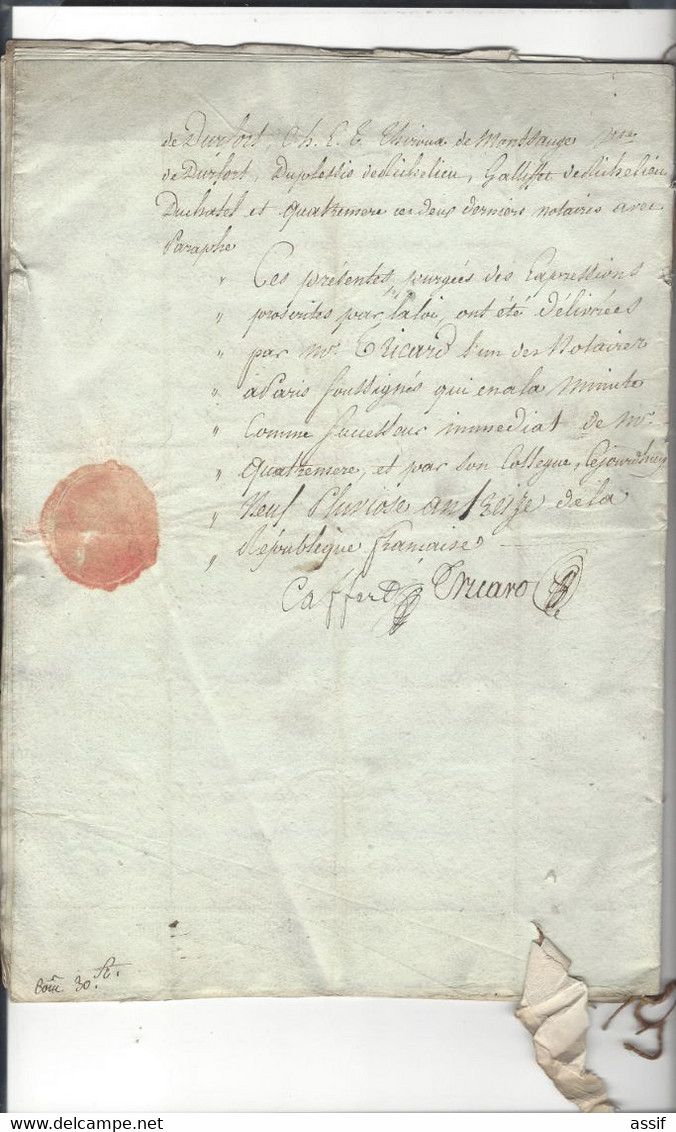 de Durfort, Ch. E. E. Thiroux de Montsauge
de Durfort, Duplessis de Richelieu, Galliffet de Richelieu
Duchatel et Quatremere ces deux derniers notaires avec
Paraphe
" Ces présentes, purgées des Expressions
" proscrites par la loi, ont été délivrées
" par Mr. Tricard l'un des Notaires
" à Paris soussignés qui en a la minute
" Comme successeur immediat de Mr.
" Quatremere, et par son Collegue, Cejourdhuy
" Neuf Pluviose an treize de la
" République française
Tricard
30
assif
www.delcampe.net